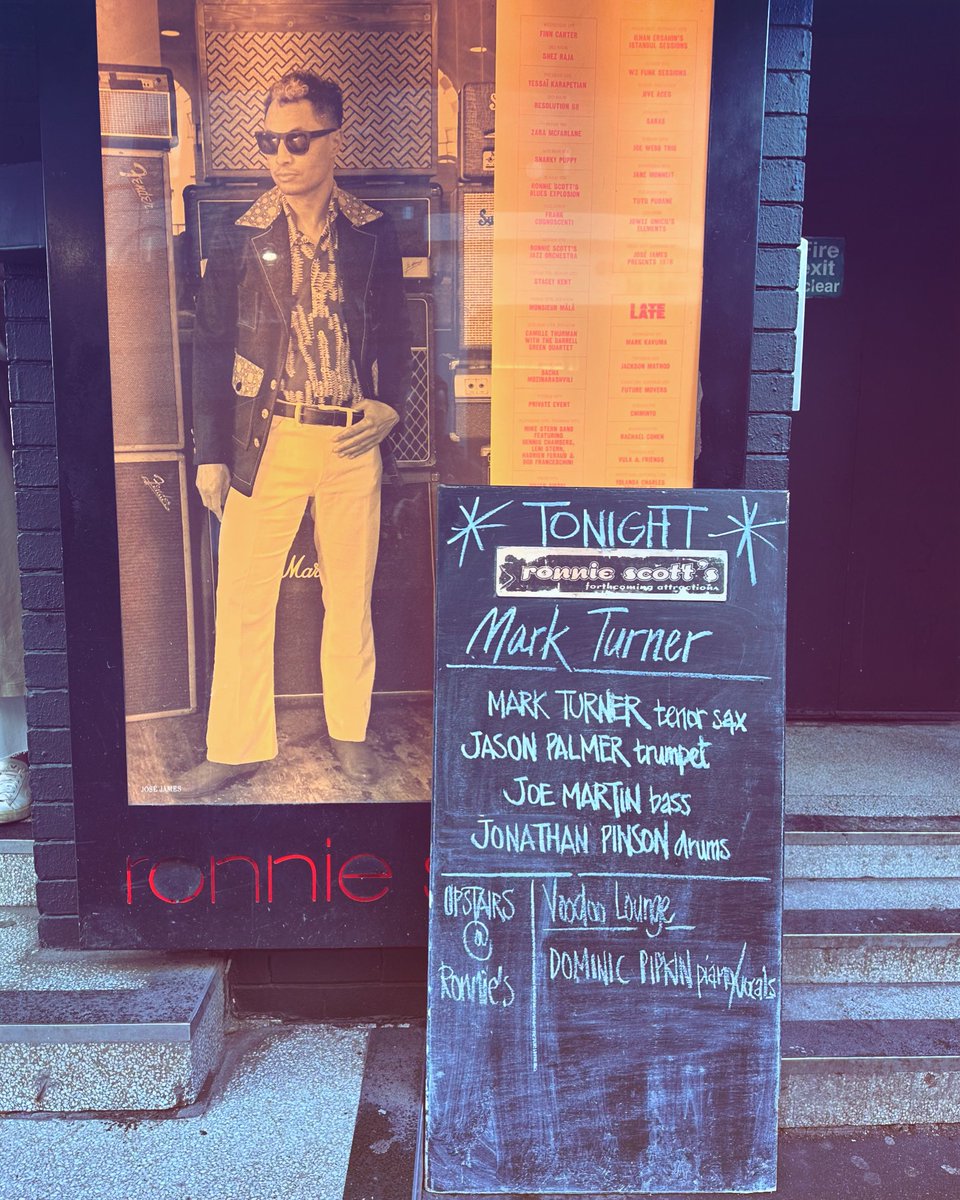 FINN CARTER
SHEZ RAJA
TESSAÏ KARAPETIAN
RESOLUTION 88
ZARA MCFARLANE
SNARKY PUPPY
RONNIE SCOTT'S
BLUES EXPLOSION
FRANK
COGNOSCENTI
RONNIE SCOTT'S
JAZZ ORCHESTRA
STACEY KENT
MONSIEUR MÂLÂ
CAMILLE THURMAN
WITH THE DARRELL
GREEN QUARTET
SACHA
PRIVATE EVENT
MIKE STERN BAND
FEATURING
DENNIS CHAMBERS,
LENI STERN,
ILHAN ERSAHIN'S
ISTANBUL SESSIONS
W3 FUNK SESSIONS
JIVE ACES
SARAS
JOE WEBB TRIO
JANE MONHEIT
YOTO PUBANE
ELEMENTS
JOSÉ JAMES
PRESENTS 1978
LATE
MARK KAVUMA
JACKSON MATHOD
FUTURE MOVERS
CHIMINYO
RACHAEL COHEN
YOLANDA CHARLES
Fender
Fender
Mar
JOSÉ JAMES
ronnie s
fire
exit
clear
TONIGHT
ronnie scott's
forthcoming attractions
Mark Turner
MARK TURNER tenor sax
JASON PALMER trumpet
JOE MARTIN bass
JONATHAN PINSON drums
UPSTAIRS
@
Ronnie's
Voodoo Lounge
DOMINIC PIPKIN piano/vocals